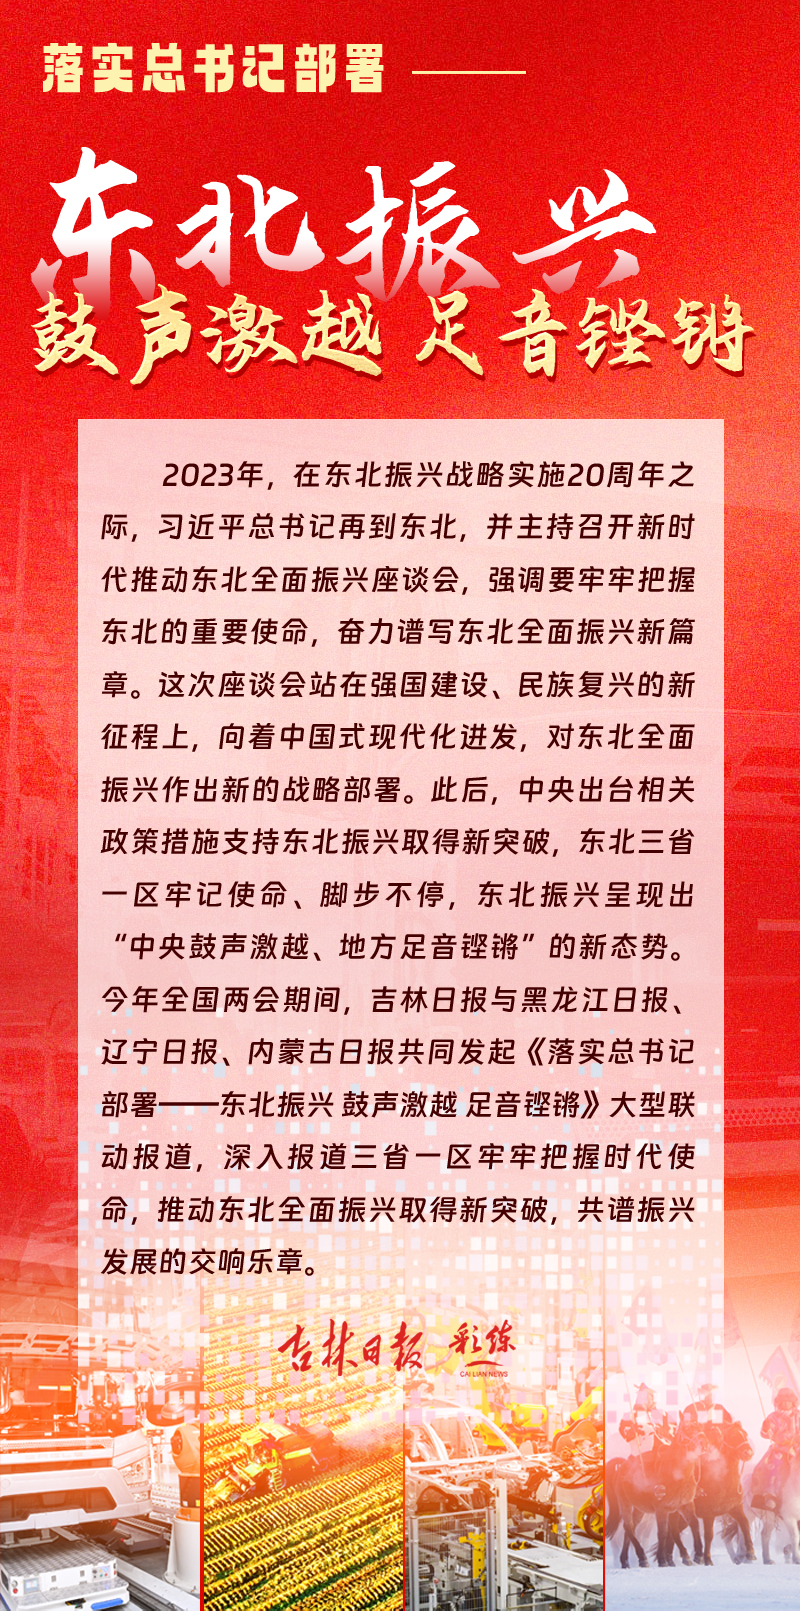 落实总书记部署——
东北振兴
鼓声激越 足音铿锵
2023年，在东北振兴战略实施20周年之
际，习近平总书记再到东北，并主持召开新时
代推动东北全面振兴座谈会，强调要牢牢把握
东北的重要使命，奋力谱写东北全面振兴新篇
章。这次座谈会站在强国建设、民族复兴的新
征程上，向着中国式现代化进发，对东北全面
振兴作出新的战略部署。此后，中央出台相关
政策措施支持东北振兴取得新突破，东北三省
一区牢记使命、脚步不停，东北振兴呈现出
“中央鼓声激越、地方足音铿锵”的新态势。
今年全国两会期间，吉林日报与黑龙江日报、
辽宁日报、内蒙古日报共同发起《落实总书记
部署——东北振兴 鼓声激越 足音铿锵》大型联
动报道，深入报道三省一区牢牢把握时代使
命，推动东北全面振兴取得新突破，共谱振兴
发展的交响乐章。
吉林日报 彩练
CAI LIAN NEWS